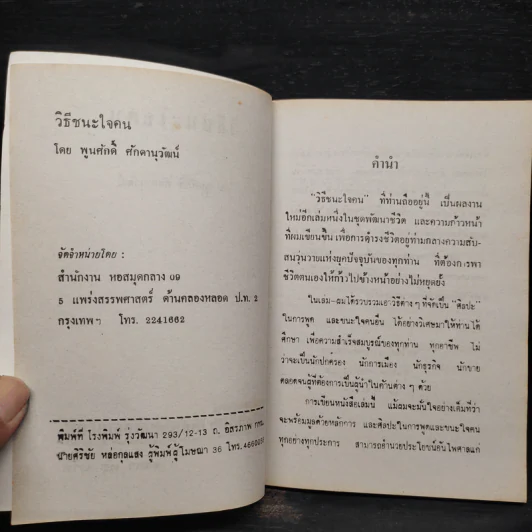 วิธีชนะใจคน
โดย พูนศักดิ์ ศักดานุวัฒน์
จัดจำหน่ายโดย :
สำนักงาน หอสมุดกลาง 09
5 แพร่งสรรพศาสตร์ ด้านคลองหลอด ป.ท. 2
กรุงเทพฯ โทร. 2241662
พิมพ์ที่ โรงพิมพ์ รุ่งวัฒนา 293/12-13 ถ. อิสรภาพ กทม.
นายศิริชัย หล่อกุลแสง ผู้พิมพ์ผู้โฆษณา 36 โทร.
คำนำ
"วิธีชนะใจคน" ที่ท่านถืออยู่นี้ เป็นผลงาน
ใหม่อีกเล่มหนึ่งในชุดพัฒนาชีวิต และความก้าวหน้า
ที่ผมเขียนขึ้น เพื่อการดำรงชีวิตอยู่ท่ามกลางความสับ-
สนวุ่นวายแห่งยุคปัจจุบันของทุกท่าน ที่ต้องการพา
ชีวิตตนเองให้ก้าวไปข้างหน้าอย่างไม่หยุดยั้ง
ในเล่ม-ผมได้รวบรวมเอาวิธีต่าง ๆ ที่จัดเป็น "ศิลปะ"
ในการพูด และชนะใจคนอื่น ได้อย่างวิเศษมาให้ท่านได้
ศึกษา เพื่อความสำเร็จสมบูรณ์ของทุกท่าน ทุกอาชีพ ไม่
ว่าจะเป็นนักปกครอง นักการเมือง นักธุรกิจ นักขาย
ตลอดจนผู้ที่ต้องการเป็นผู้นำในด้านต่าง ๆ ด้วย
การเขียนหนังสือเล่มนี้ แม้ผมจะมั่นใจอย่างเต็มที่ว่า
จะพร้อมมูลด้วยหลักการ และศิลปะในการพูดและชนะใจคน
ทุกอย่างทุกประการ สามารถอำนวยประโยชน์อันไพศาลแก่